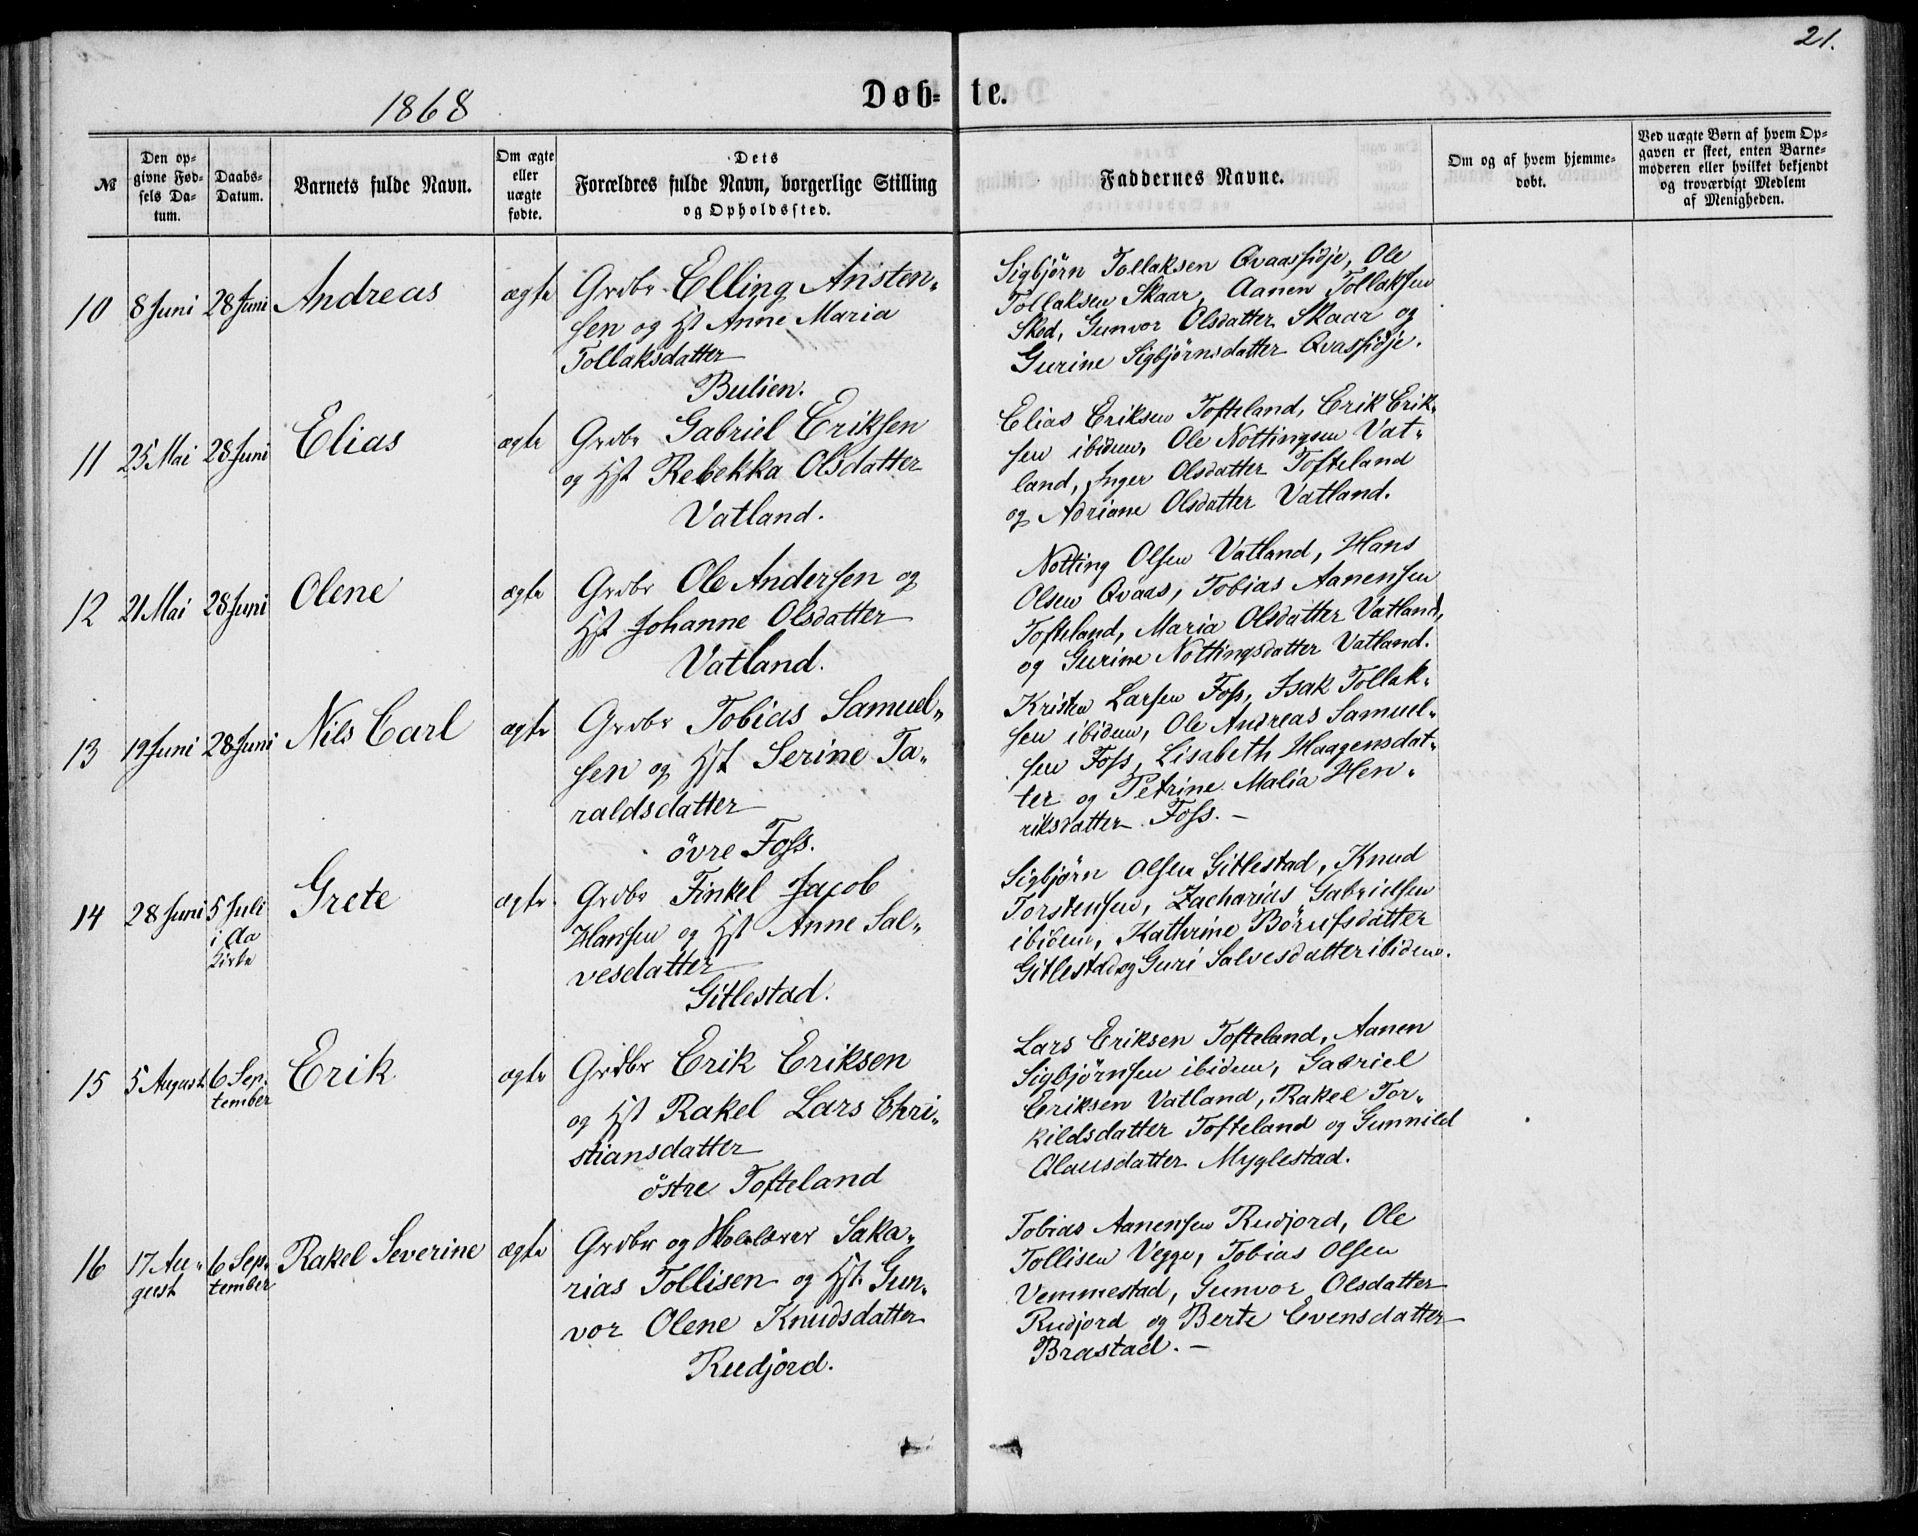 21.
1868
Døb-te.
№
Den op-
givne Fød-
sels Da-
tum.
Daabs-
Datum.
Barnets fulde Navn.
Om ægte
eller
uægte
fødte.
Dets
Forældres fulde Navn, borgerlige Stilling
og Opholdssted.
Faddernes Navne.
Om og af hvem hjemme-
døbt.
Ved uægte Børn af hvem Op-
gaven er skeet, enten Barne-
moderen eller hvilket bekjendt
og troværdigt Medlem
af Menigheden.
10 8 Juni 28 Juni Andreas ægte Grdbr Elling Ansten-
sen og Hst Anne Maria
Tollaksdatter
Bulien.
Sigbjörn Tollaksen Qvaassidje, Ole
Tollaksen Skaar, Aanen Tollaksen
Sked, Gunvor Olsdatter Skaar og
Gurine Sigbjörnsdatter Qvassidje.
11 25 Mai 28 Juni Elias ægte Grdbr Gabriel Eriksen
og Hst Rebekka Olsdatter
Vatland.
Elias Eriksen Tofteland, Erik Erik-
sen ibidem, Ole Nottingsen Vat-
land, Inger Olsdatter Tofteland
og Adriane Olsdatter Vatland.
12 21 Mai 28 Juni Olene ægte Grdbr Ole Andersen og
Hst Johanne Olsdatter
Vatland.
Notting Olsen Vatland, Hans
Olsen Qvaas, Tobias Aanensen
Tofteland, Maria Olsdatter Vatland,
og Gurine Nottingsdatter Vatland.
13 19 Juni 28 Juni Nils Carl ægte Grdbr Tobias Samuel-
sen og Hst Serine Ta-
raldsdatter
övre Foss.
Kristen Larsen Foss, Isak Tollak-
sen ibidem, Ole Andreas Samuel-
sen Foss, Lisabeth Haagensdat-
ter og Petrine Malia Hen-
riksdatter Foss. –
14 28 Juni 5 Juli
i Aa
Kirke
Grete ægte Grdbr Finkel Jacob
Hansen og Hst Anne Sal-
vesdatter
Gitlestad.
Sigbjörn Olsen Gitlestad, Knud
Torstensen, Zacharias Gabrielsen
ibidem, Kathrine Börufsdatter
Gitlestad og Guri Salvesdatter ibidem.
15 5 August 6 Sep-
tember
Erik ægte Grdbr Erik Eriksen
og Hst Rakel Lars Chri-
stiansdatter
östre Tofteland
Lars Eriksen Tofteland, Aanen
Sigbjörnsen ibidem, Gabriel
Eriksen Vatland, Rakel Tor-
kildsdatter Tofteland og Gunnild
Olausdatter Myglestad.
16 17 Au-
gust
6 Sep-
tember
Rakel Severine ægte Grdbr og Saka-
rias Tollisen og Hst Gun-
vor Olene Knudsdatter
Rudjord.
Tobias Aanensen Rudjord, Ole
Tollisen Vegge, Tobias Olsen
Vemmestad, Gunvor Olsdatter
Rudjord og Berte Evensdatter
Brastad. –